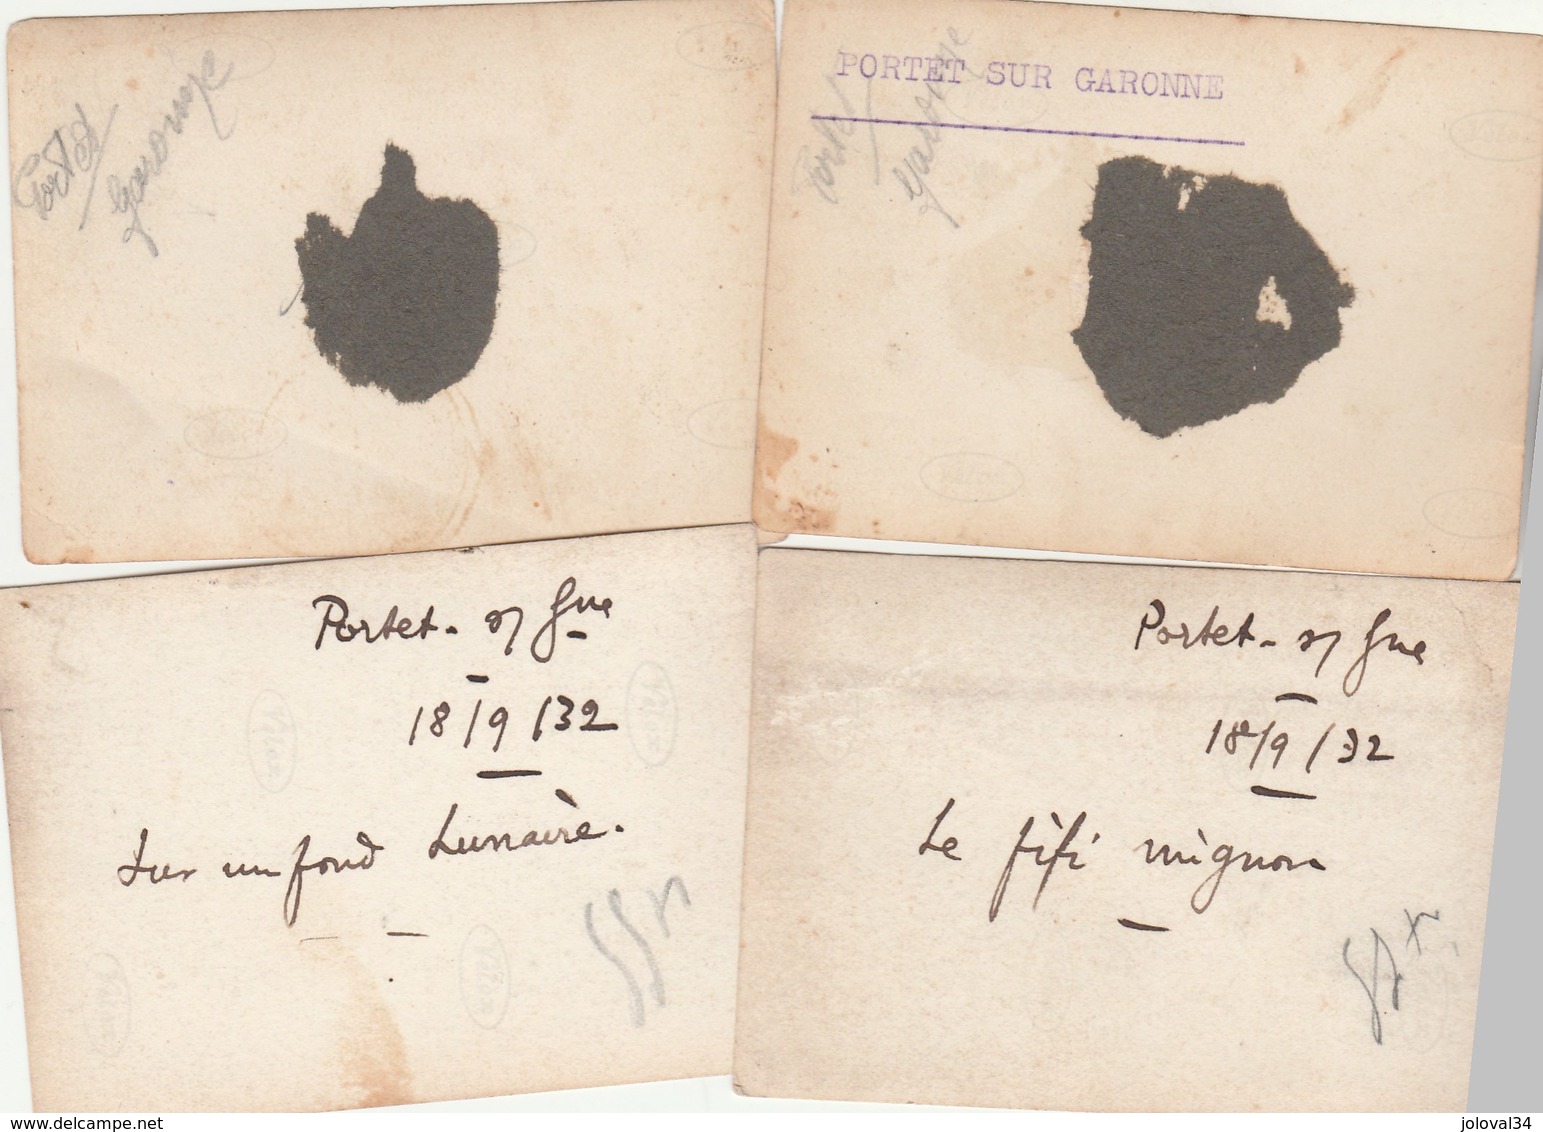 Portet
Garonne
PORTET SUR GARONNE
Portet
Garonne
Portet - s/ Gne
18/9/32
Sur un fond Lunaire.
Portet - s/ Gne
18/9/32
Le fifi mignon
Vitex
Vitex
Vitex
Vitex
www.delcampe.net
joloval34